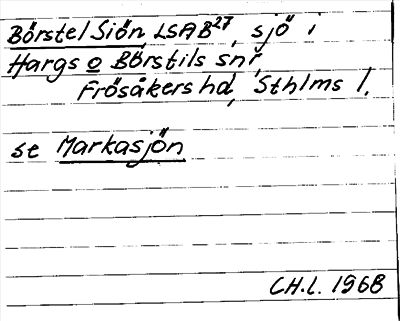 Börstel Siön, LSAB27, sjö i
Hargs o Börstils snr,
Frösåkers hd, Sthlms l.
se Markasjön
CH.L. 1968